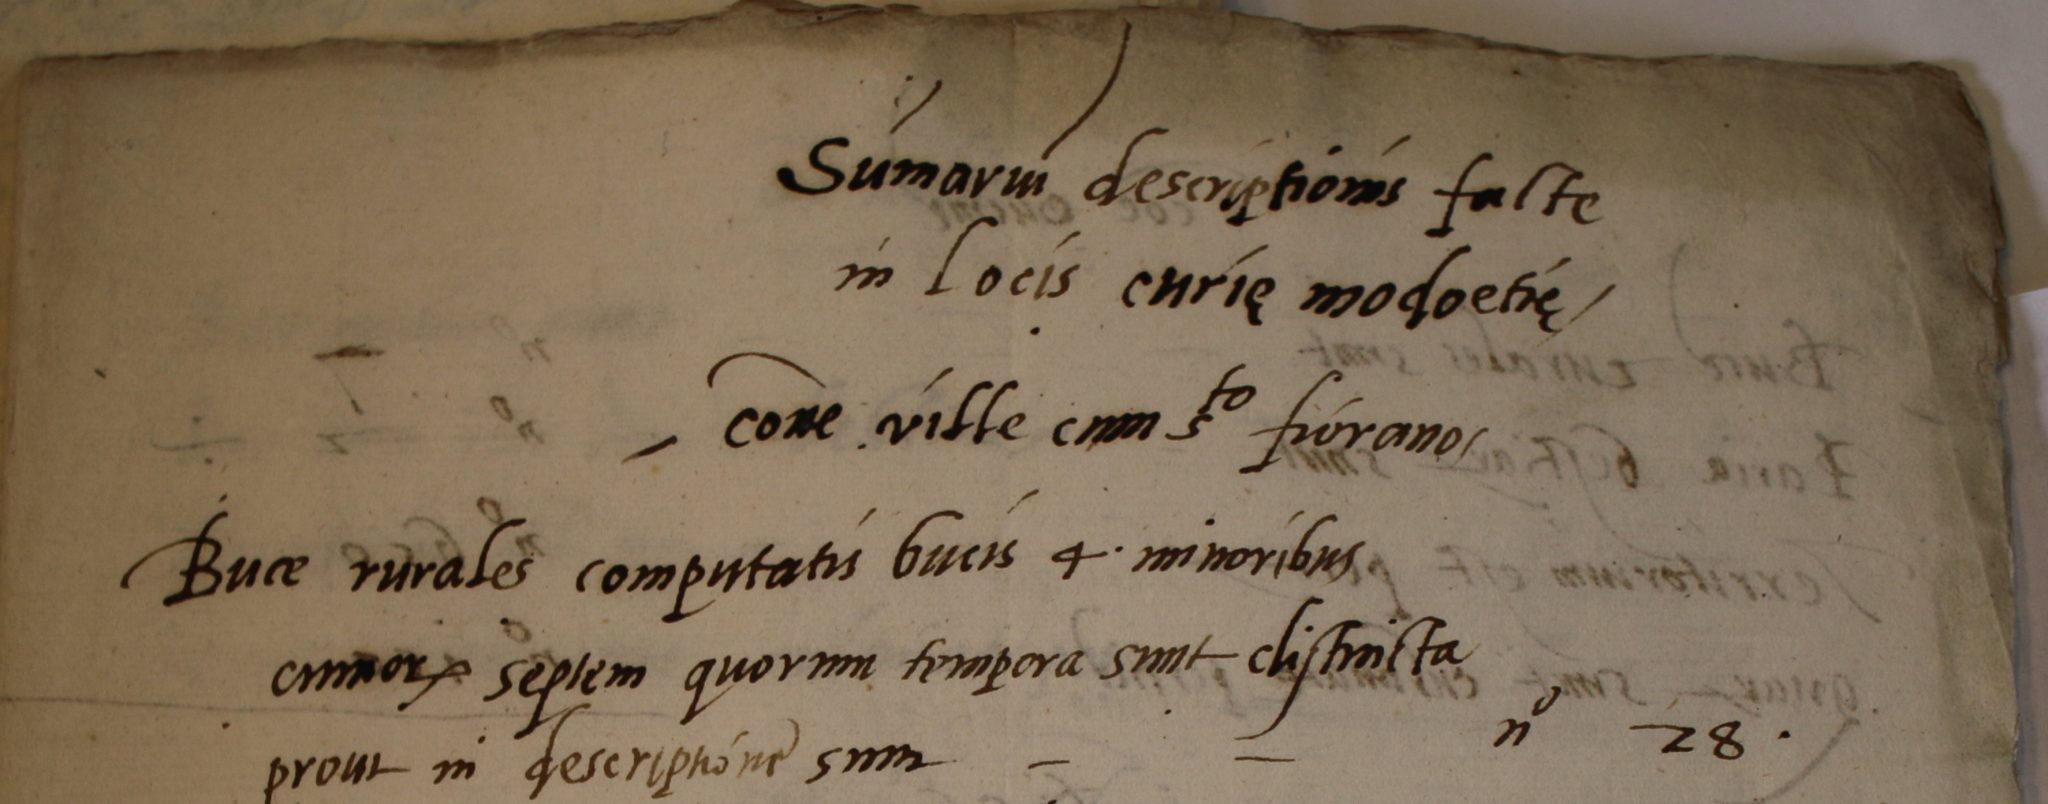 Sumariu descriptionis facte
in locis curię modoetię
coñe ville cum s.to fiorano
Buce rurales computatis bucis 4. minoribus
annor septem quorum tempora sunt distincta
prout in descriptione sunt — — n.o 28.